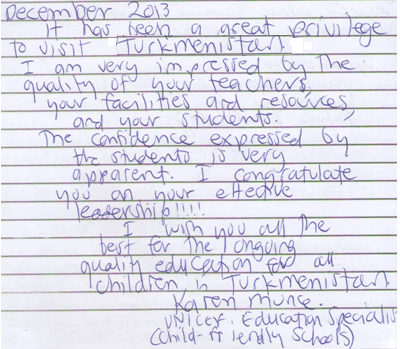 December 2013
It has been a great privilege
to visit Turkmenistan.
I am very impressed by the
quality of your teachers,
your facilities and resources,
and your students.
The confidence expressed by
the students is very
apparent. I congratulate
you on your effective
leadership!!!!
I wish you all the
best for the ongoing
quality education for all
children in Turkmenistan
Karen Munce.
UNICEF. Education Specialist
(Child-friendly schools)